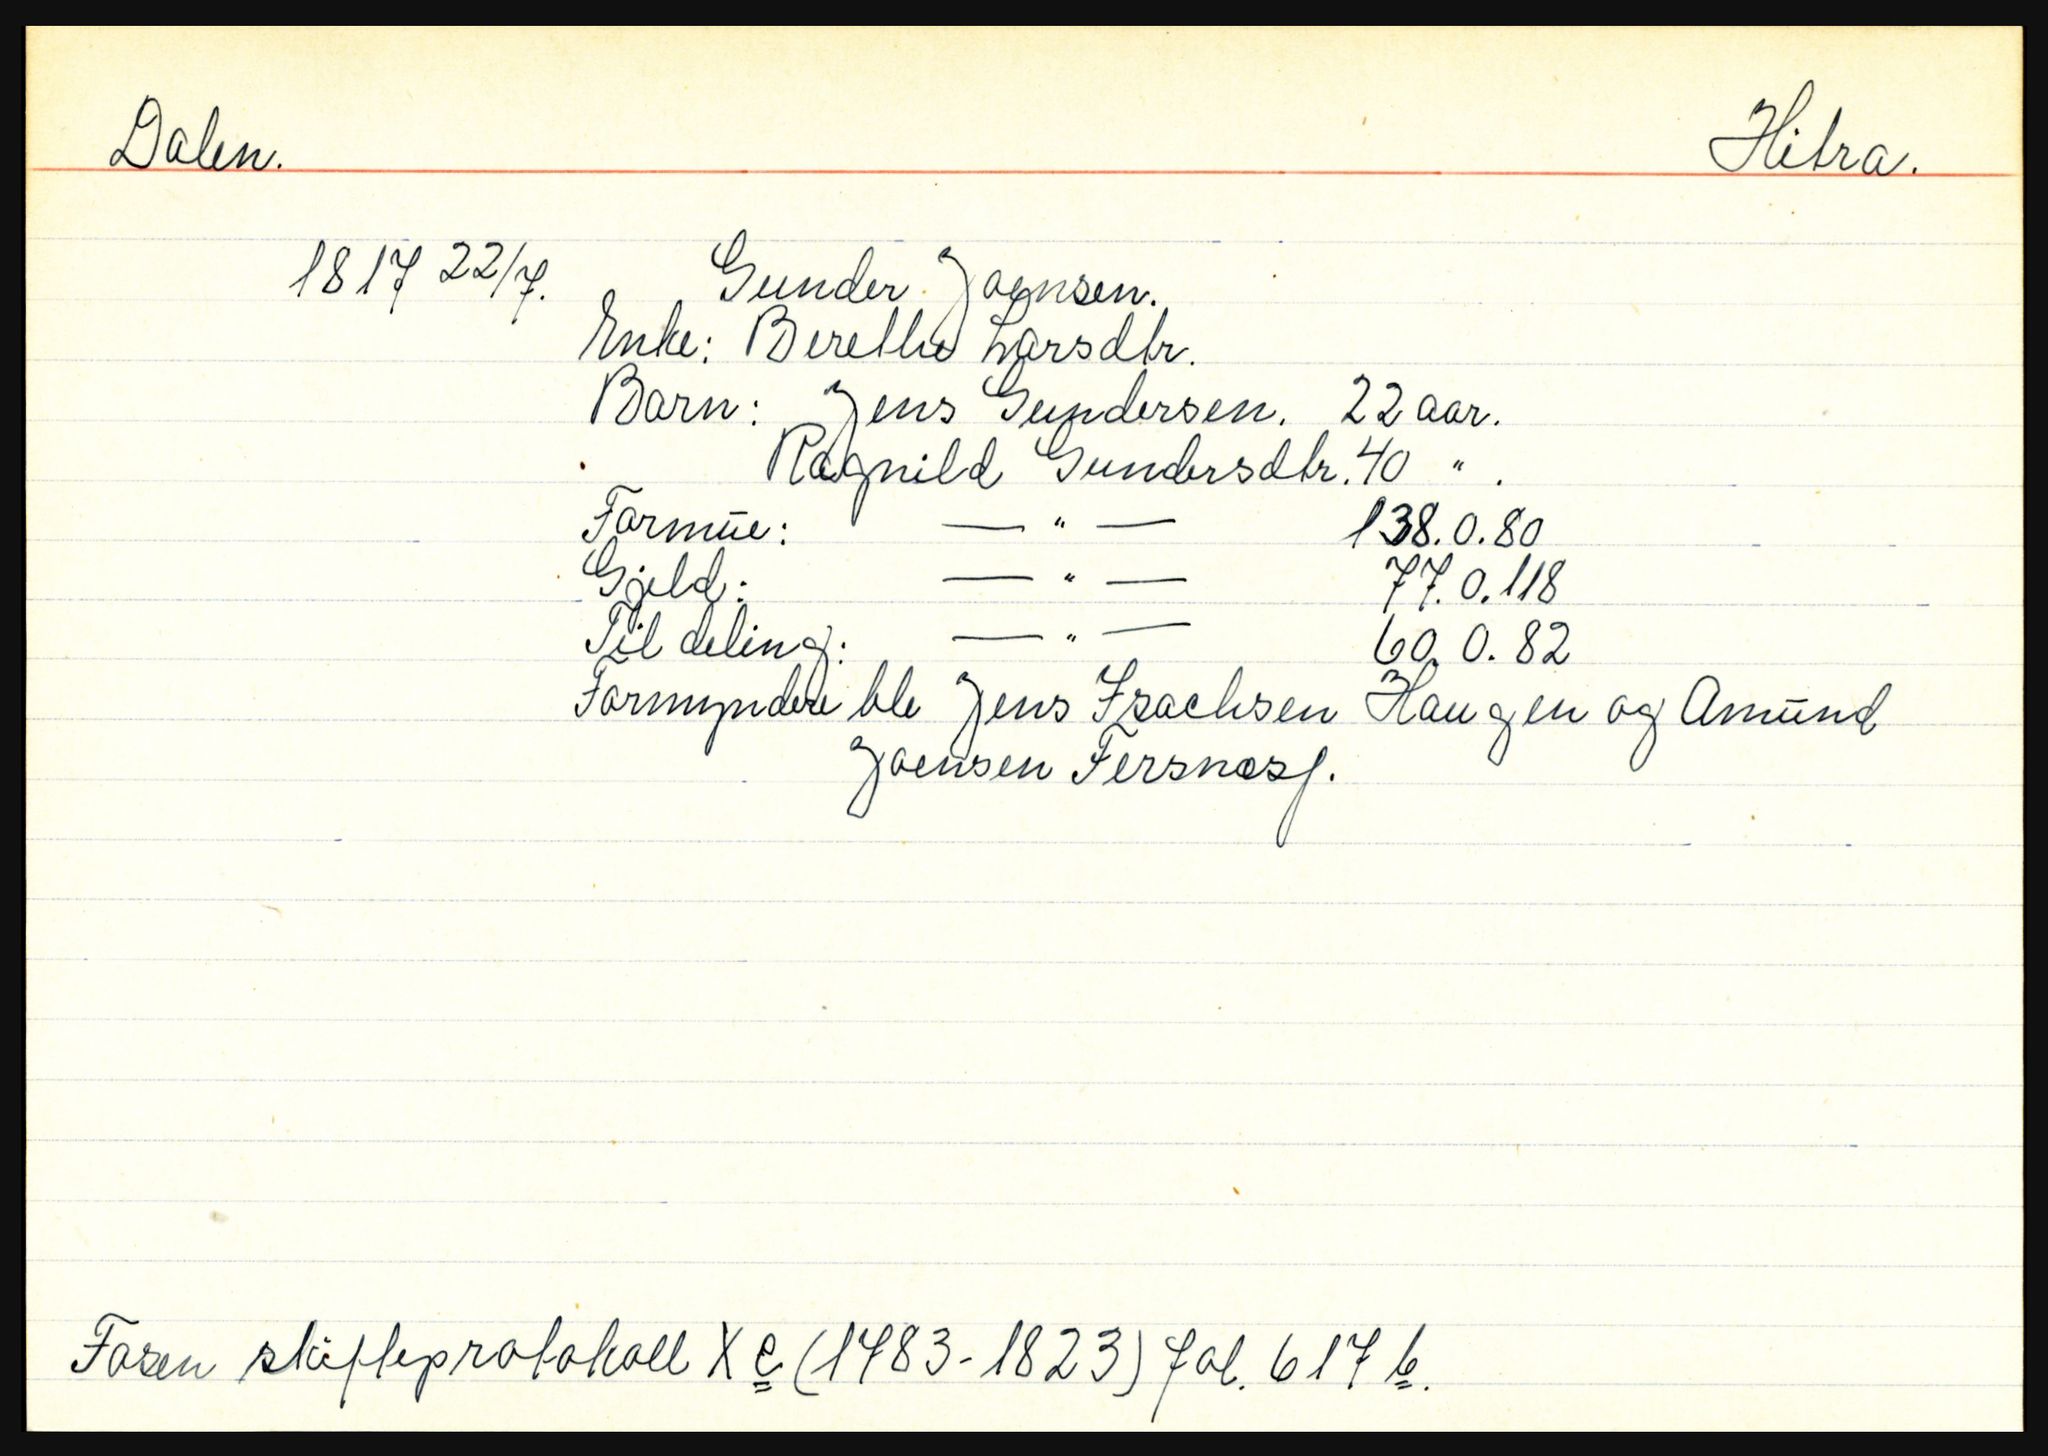 Dalen. Hitra.
1817 22/7. Gunder Joensen.
Enke: Berethe Larsdtr.
Barn: Jens Gundersen. 22 aar.
Ragnild Gundersdtr. 40 " .
Formue: — " — 138.0.80
Gjeld: — " — 77.0.118
Til deling: — " — 60.0.82
Formyndere ble Jens Isachsen Haugen og Amund
Joensen
Fosen skifteprotokoll X c (1783-1823) fol. 617 b.